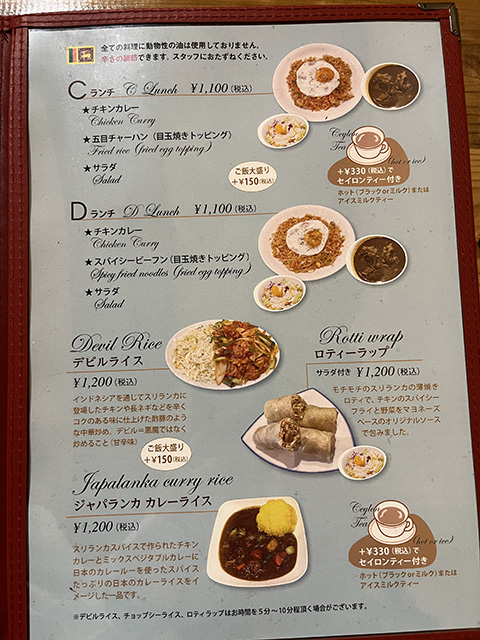 全ての料理に動物性の油は使用しておりません。
辛さの調節できます。スタッフにおたずねください。
Cランチ C Lunch ¥1,100 (税込)
★チキンカレー
Chicken Curry
★五目チャーハン(目玉焼きトッピング)
Fried rice (fried egg topping)
★サラダ
Salad
ご飯大盛り
+¥150(税込)
Ceylon
Tea
(hot or ice)
+¥330(税込)で
セイロンティー付き
ホット(ブラック or ミルク)または
アイスミルクティー
Dランチ D Lunch ¥1,100 (税込)
★チキンカレー
Chicken Curry
★スパイシービーフン(目玉焼きトッピング)
Spicy fried noodles (fried egg topping)
★サラダ
Salad
Devil Rice
デビルライス
¥1,200 (税込)
インドネシアを通じてスリランカに
登場したチキンや長ネギなどを辛く
コクのある味に仕上げた酢豚のよう
な中華炒め。デビル=悪魔ではなく
炒めること(甘辛味)
ご飯大盛り
+¥150(税込)
Rotti wrap
ロティーラップ
サラダ付き ¥1,200 (税込)
モチモチのスリランカの薄焼き
ロティで、チキンのスパイシー
フライと野菜をマヨネーズ
ベースのオリジナルソース
で包みました。
Japalanka curry rice
ジャパランカ カレーライス
¥1,200 (税込)
スリランカスパイスで作られたチキン
カレーとミックスベジタブルカレーに
日本のカレールーを使ったスパイス
たっぷりの日本のカレーライスをイ
メージした一品です。
Ceylon
Tea
(hot or ice)
+¥330(税込)で
セイロンティー付き
ホット(ブラック or ミルク)または
アイスミルクティー
※デビルライス、チョップシーライス、ロティラップはお時間を5分~10分程頂く場合がございます。